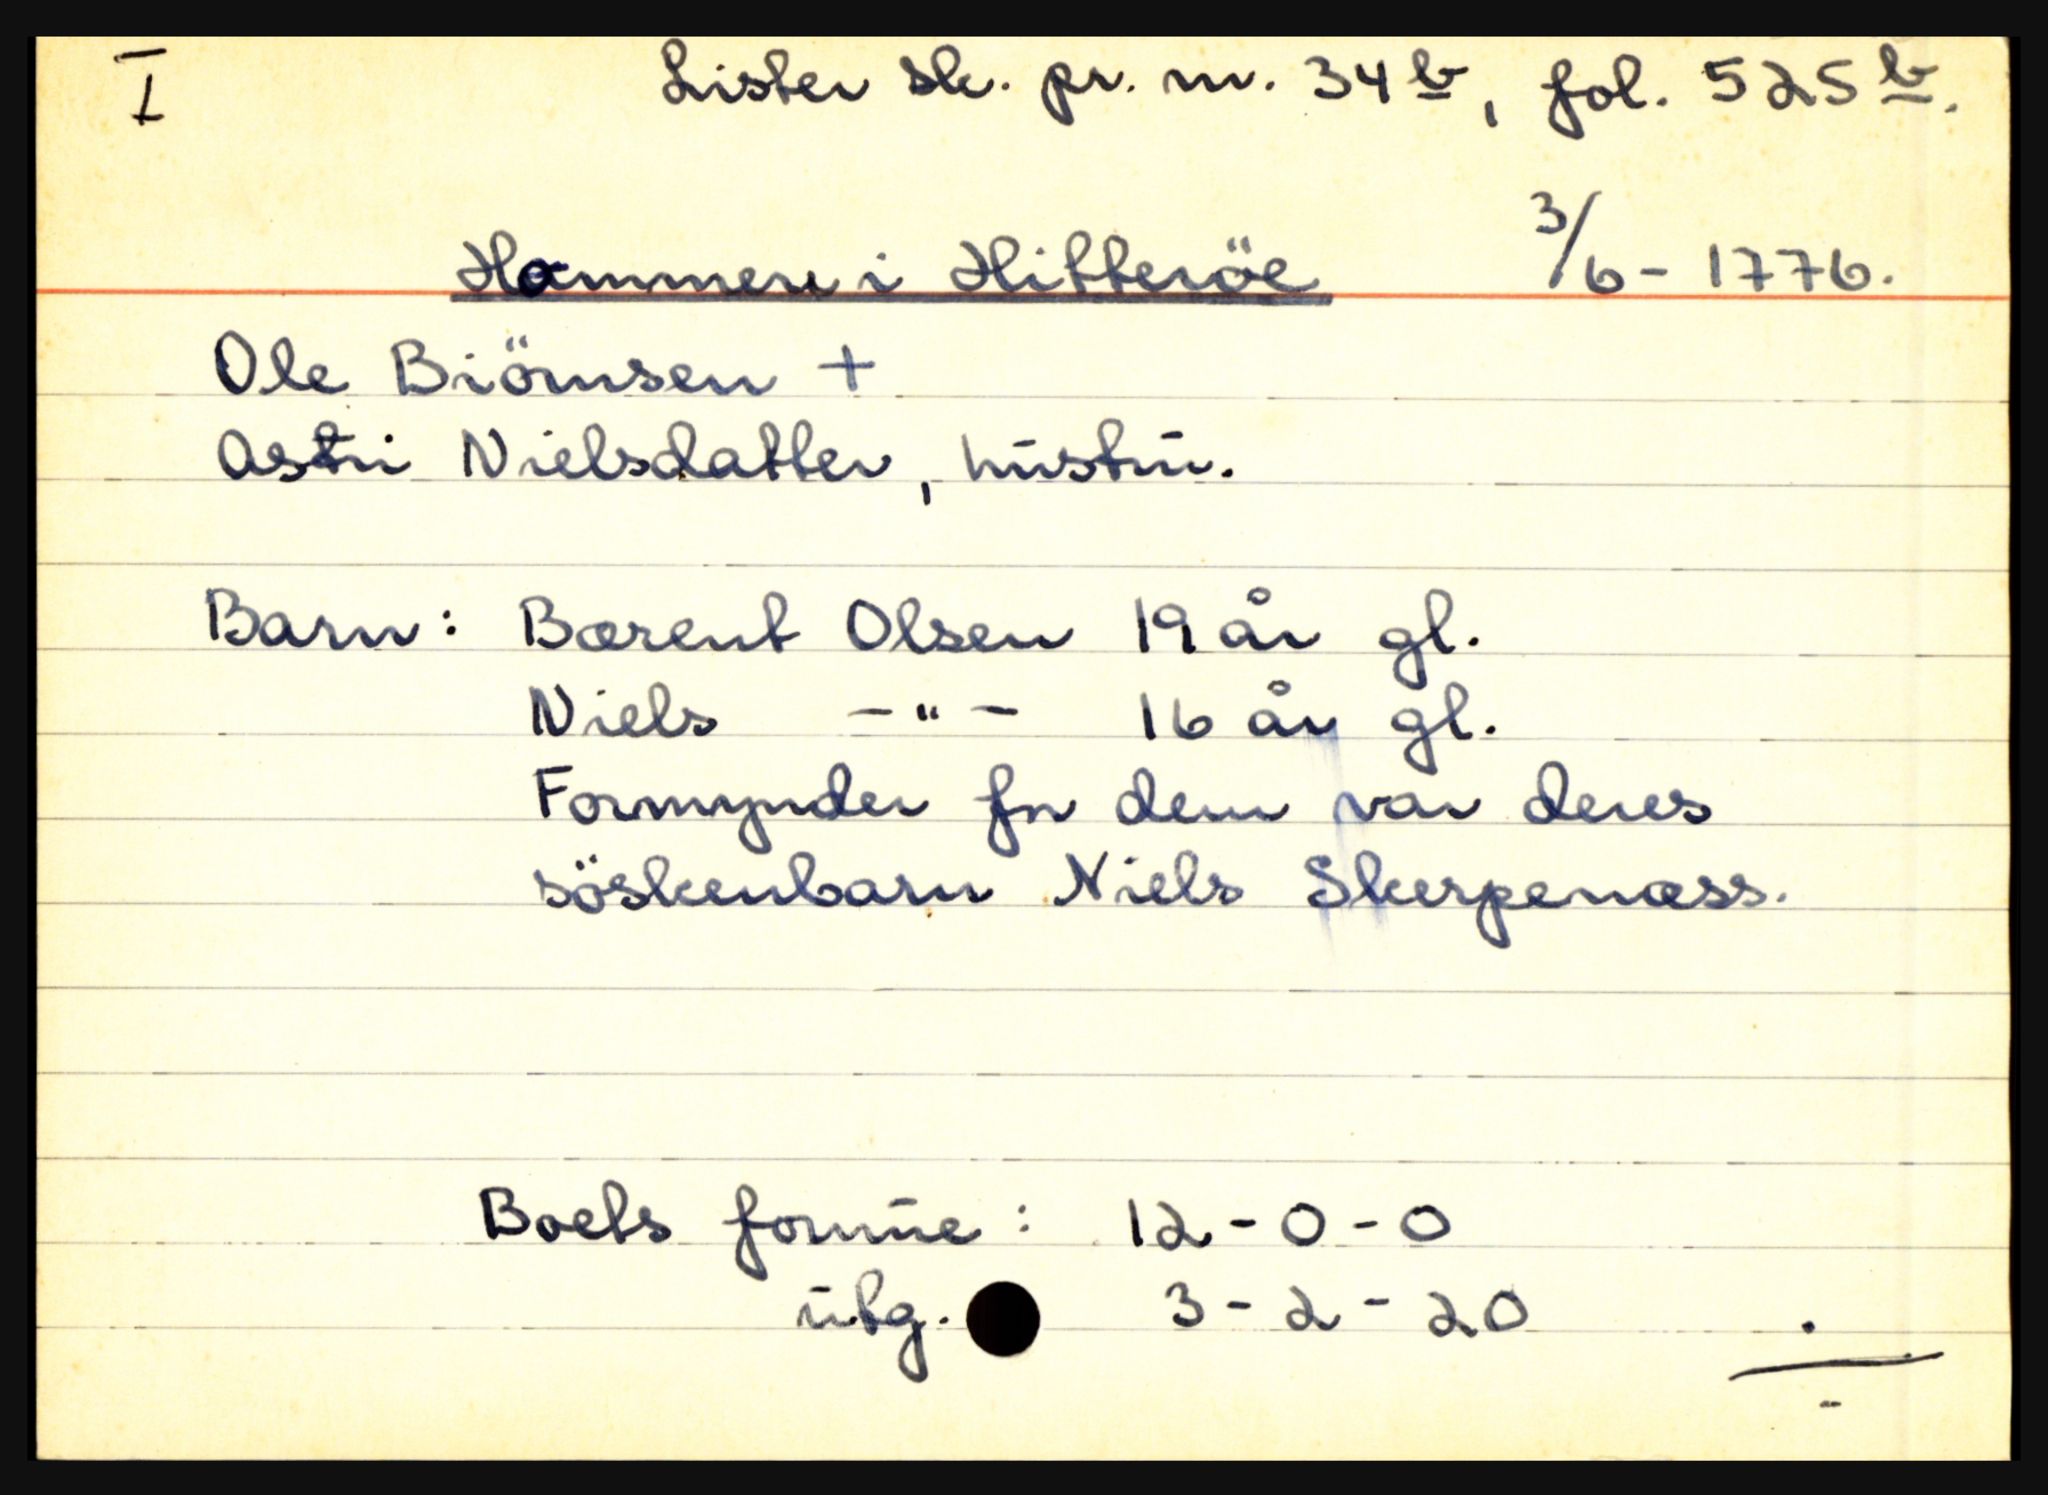 I
Lister sk. pr. nr. 34 b, fol. 525 b.
3/6 - 1776.
Hammeren i Hitteröe
Ole Biörnsen +
Astri Nielsdatter, hustru.
Barn: Bærent Olsen 19 år gl.
Niels - " - 16 år gl.
Formynder for dem var deres
söskenbarn Niels Skerpenæss.
Boets formue: 12 - 0 - 0
utg. 3 - 2 - 20